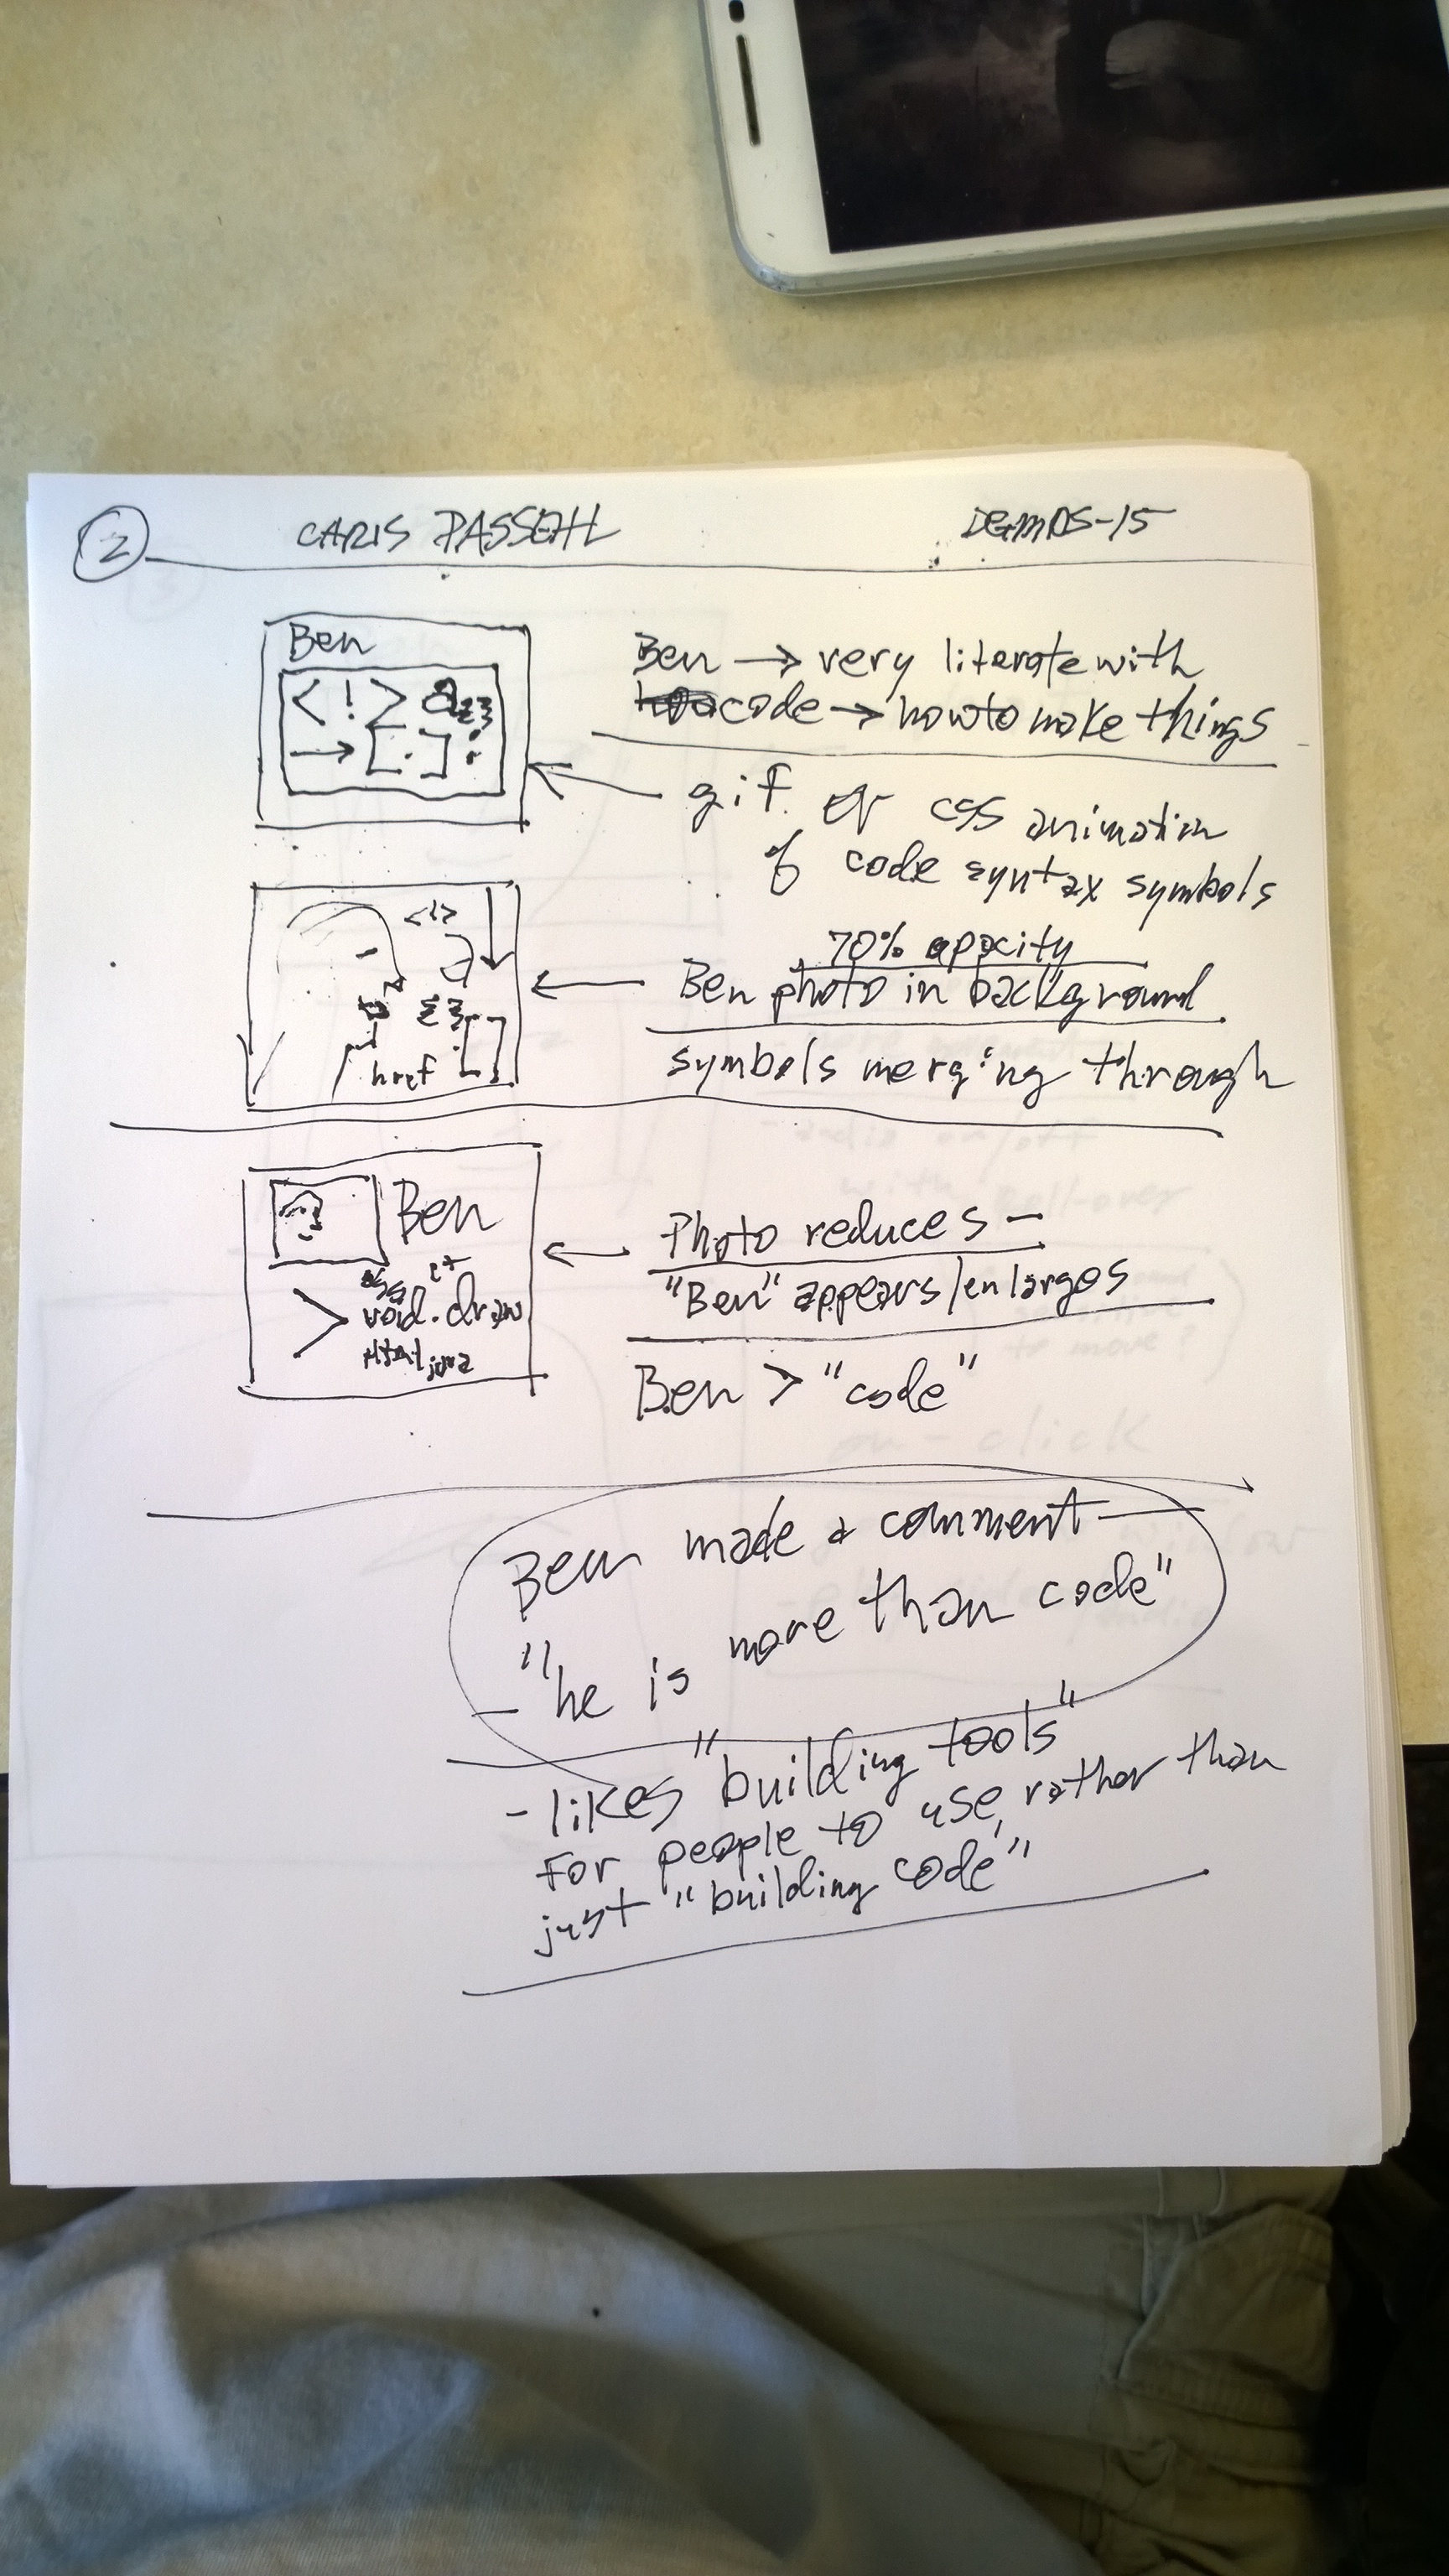 2 CHRIS PASSEHL DGMDS-15
Ben
<!> a {}
→ [.] ;
Ben → very literate with
code → how to make things
gif or css animation
of code syntax symbols
<!>
{}
href []
70% opacity
Ben photo in background
symbols merging through
Ben
> void.draw
Html java
Photo reduces —
"Ben" appears/enlarges
Ben > "code"
Ben made a comment —
— "he is more than code"
- likes "building tools"
for people to use, rather than
just "building code"